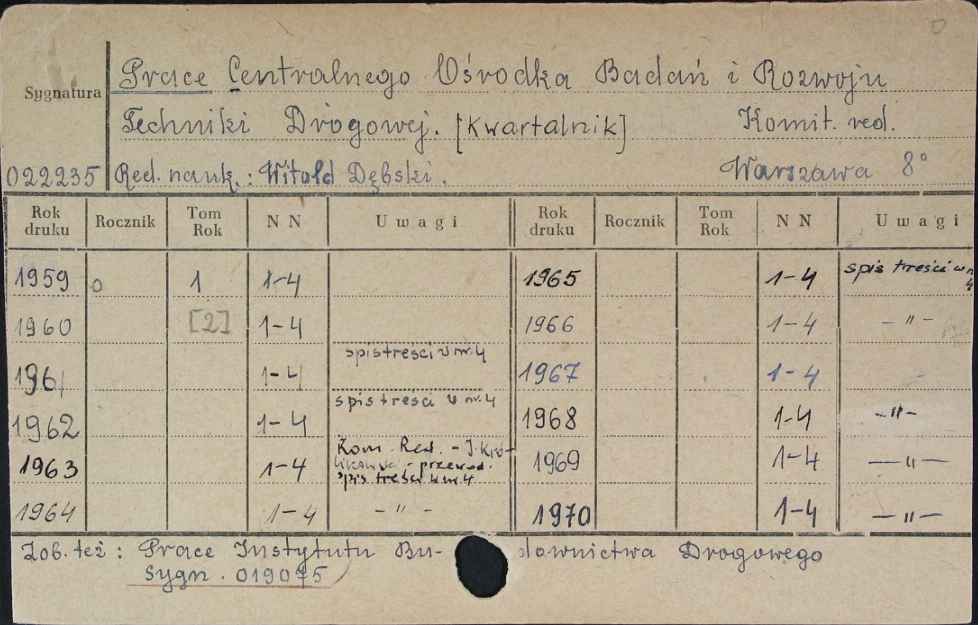 Prace Centralnego Ośrodka Badań i Rozwoju
Sygnatura
Techniki Drogowej. [Kwartalnik] Komit. red.
022235 Red. nauk.: Witold Dębski. Warszawa 8°
Rok druku Rocznik Tom Rok NN Uwagi Rok druku Rocznik Tom Rok NN Uwagi
1959 0 1 1-4 1965 1-4 spis treści w n 4
1960 [2] 1-4 1966 1-4 -"-
spis treści w nr. 4
1961 1-4 1967 1-4 -
spis treści w nr. 4
1962 1-4 1968 1-4 -"-
Kom. Red. - J. Kró-
1963 1-4 - przewod. 1969 1-4 -"-
spis treści w nr. 4
1964 1-4 -"- 1970 1-4 -"-
Zob. też: Prace Instytutu Bu- downictwa Drogowego
Sygn. 019075